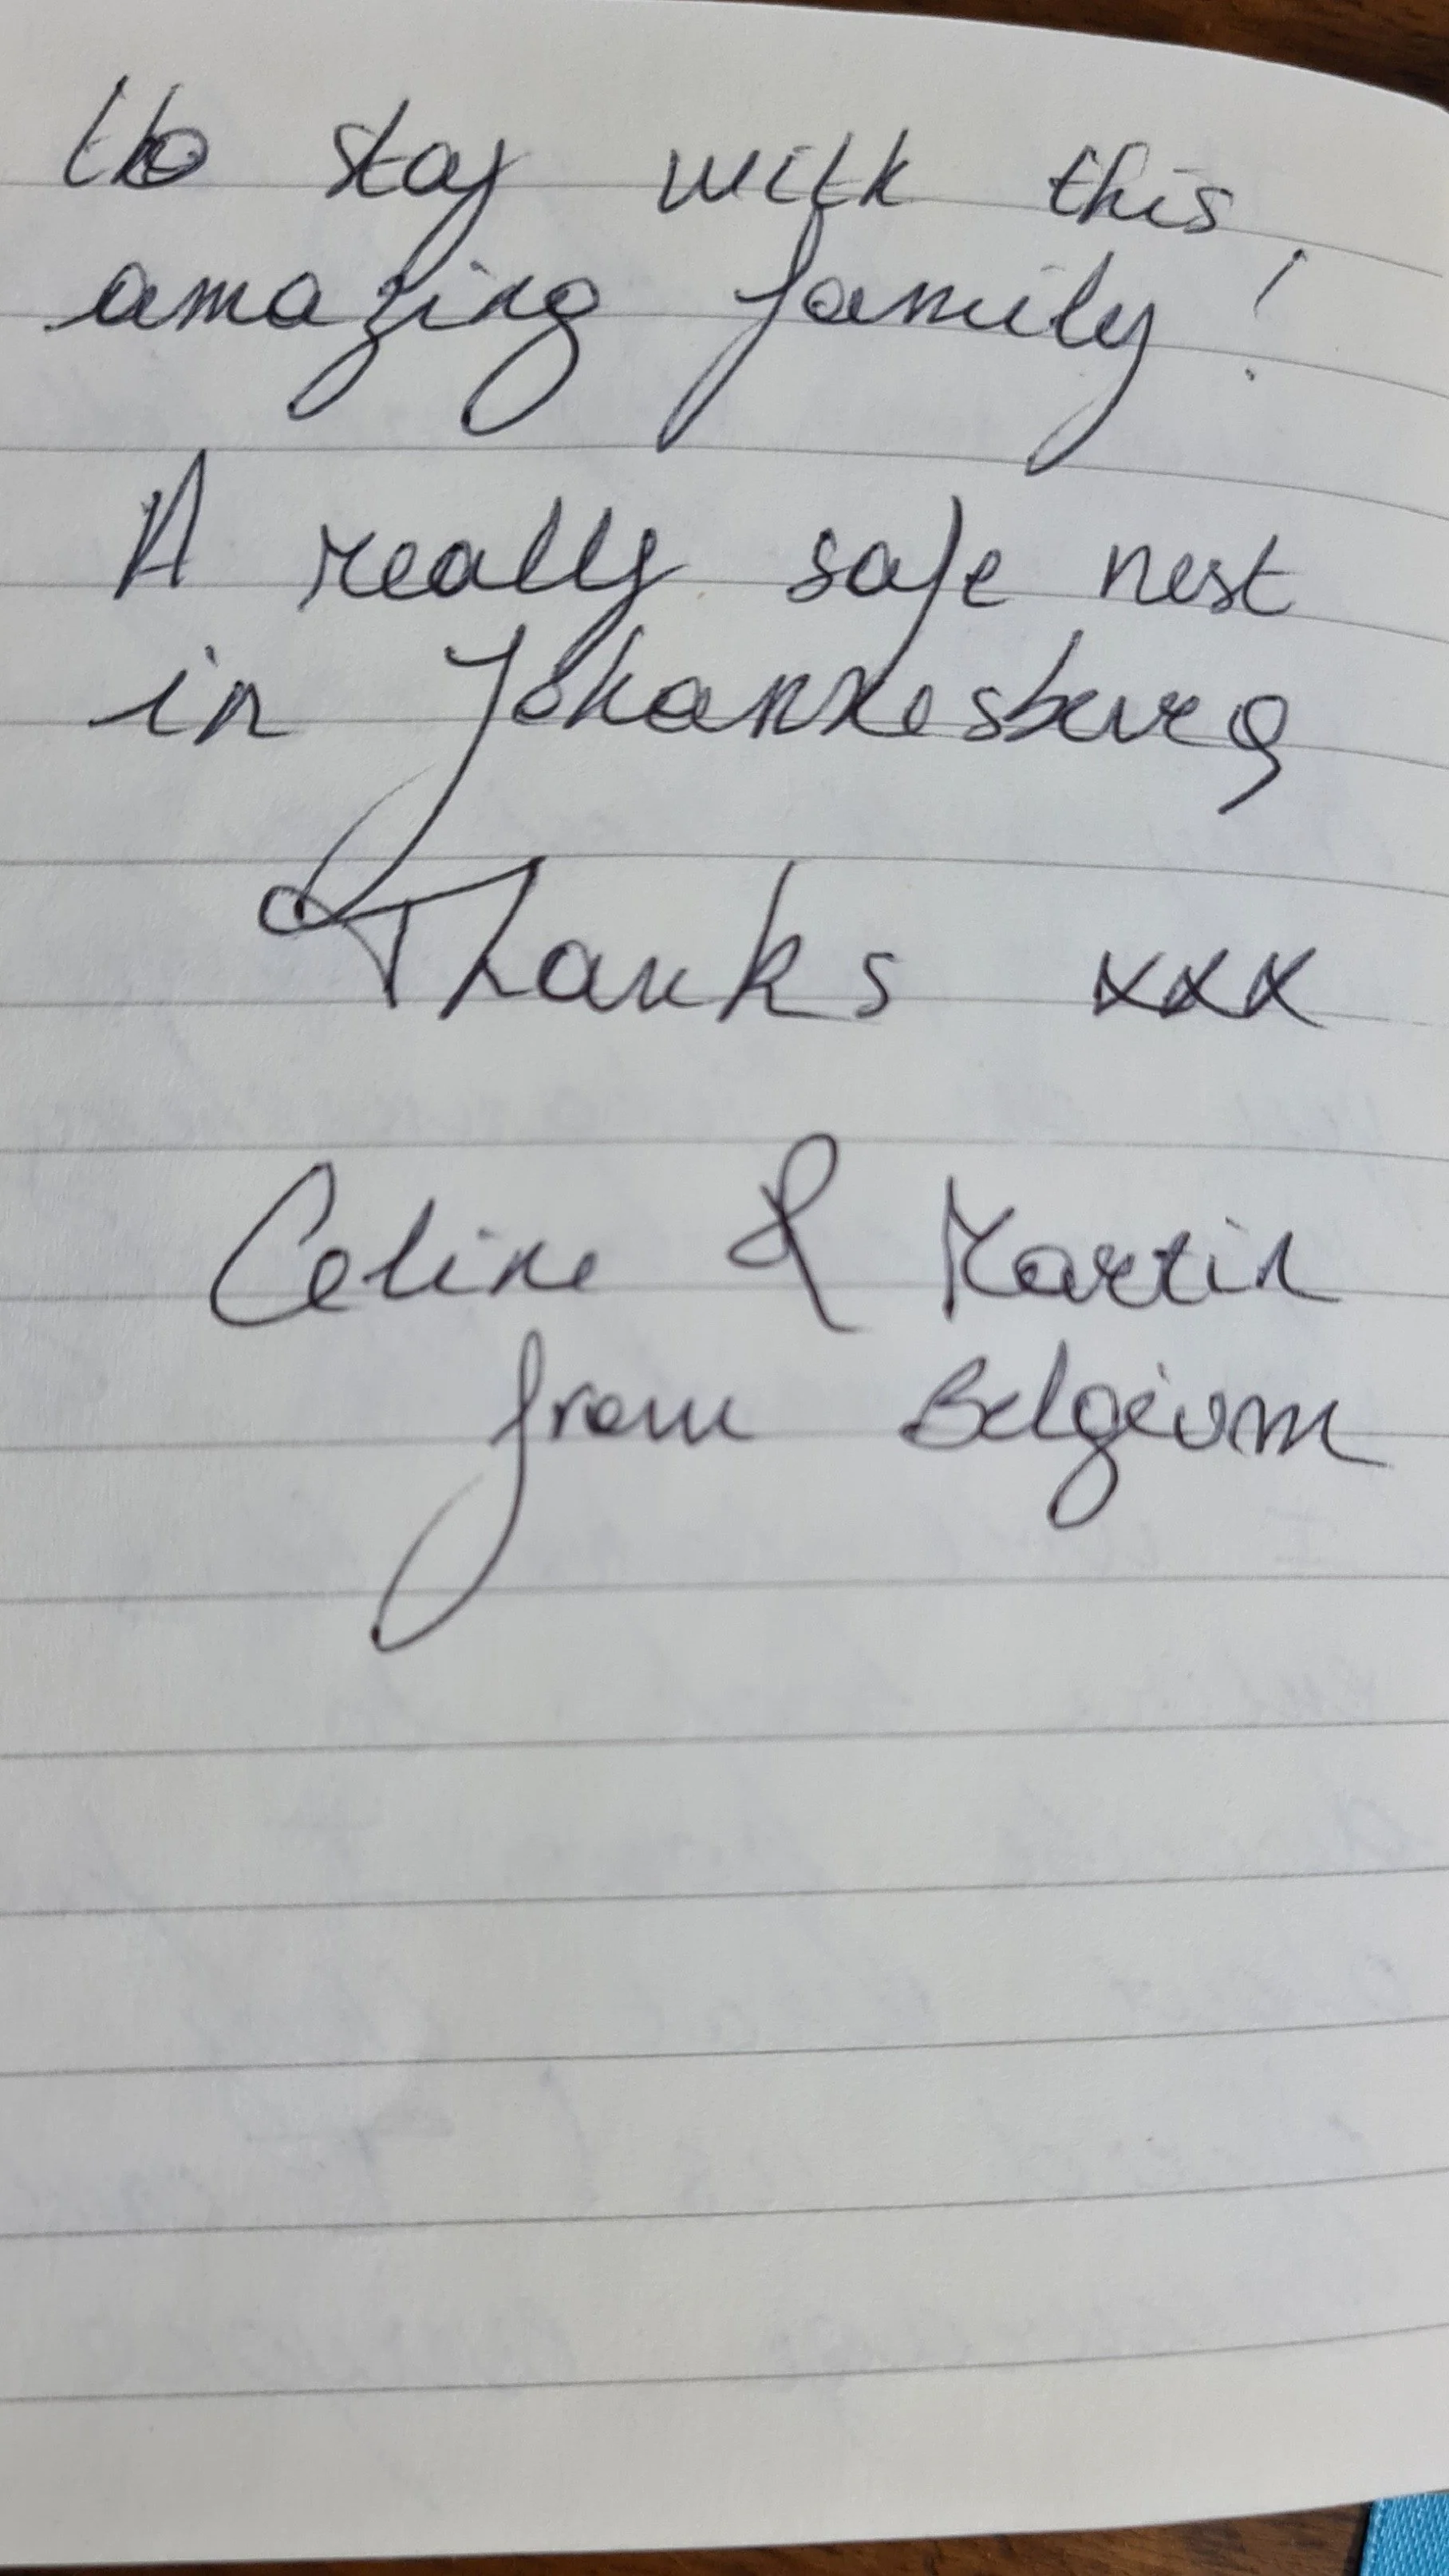 to stay with this
amazing family !
A really safe nest
in Johannesburg
Thanks xxx
Celine & Martin
from Belgium